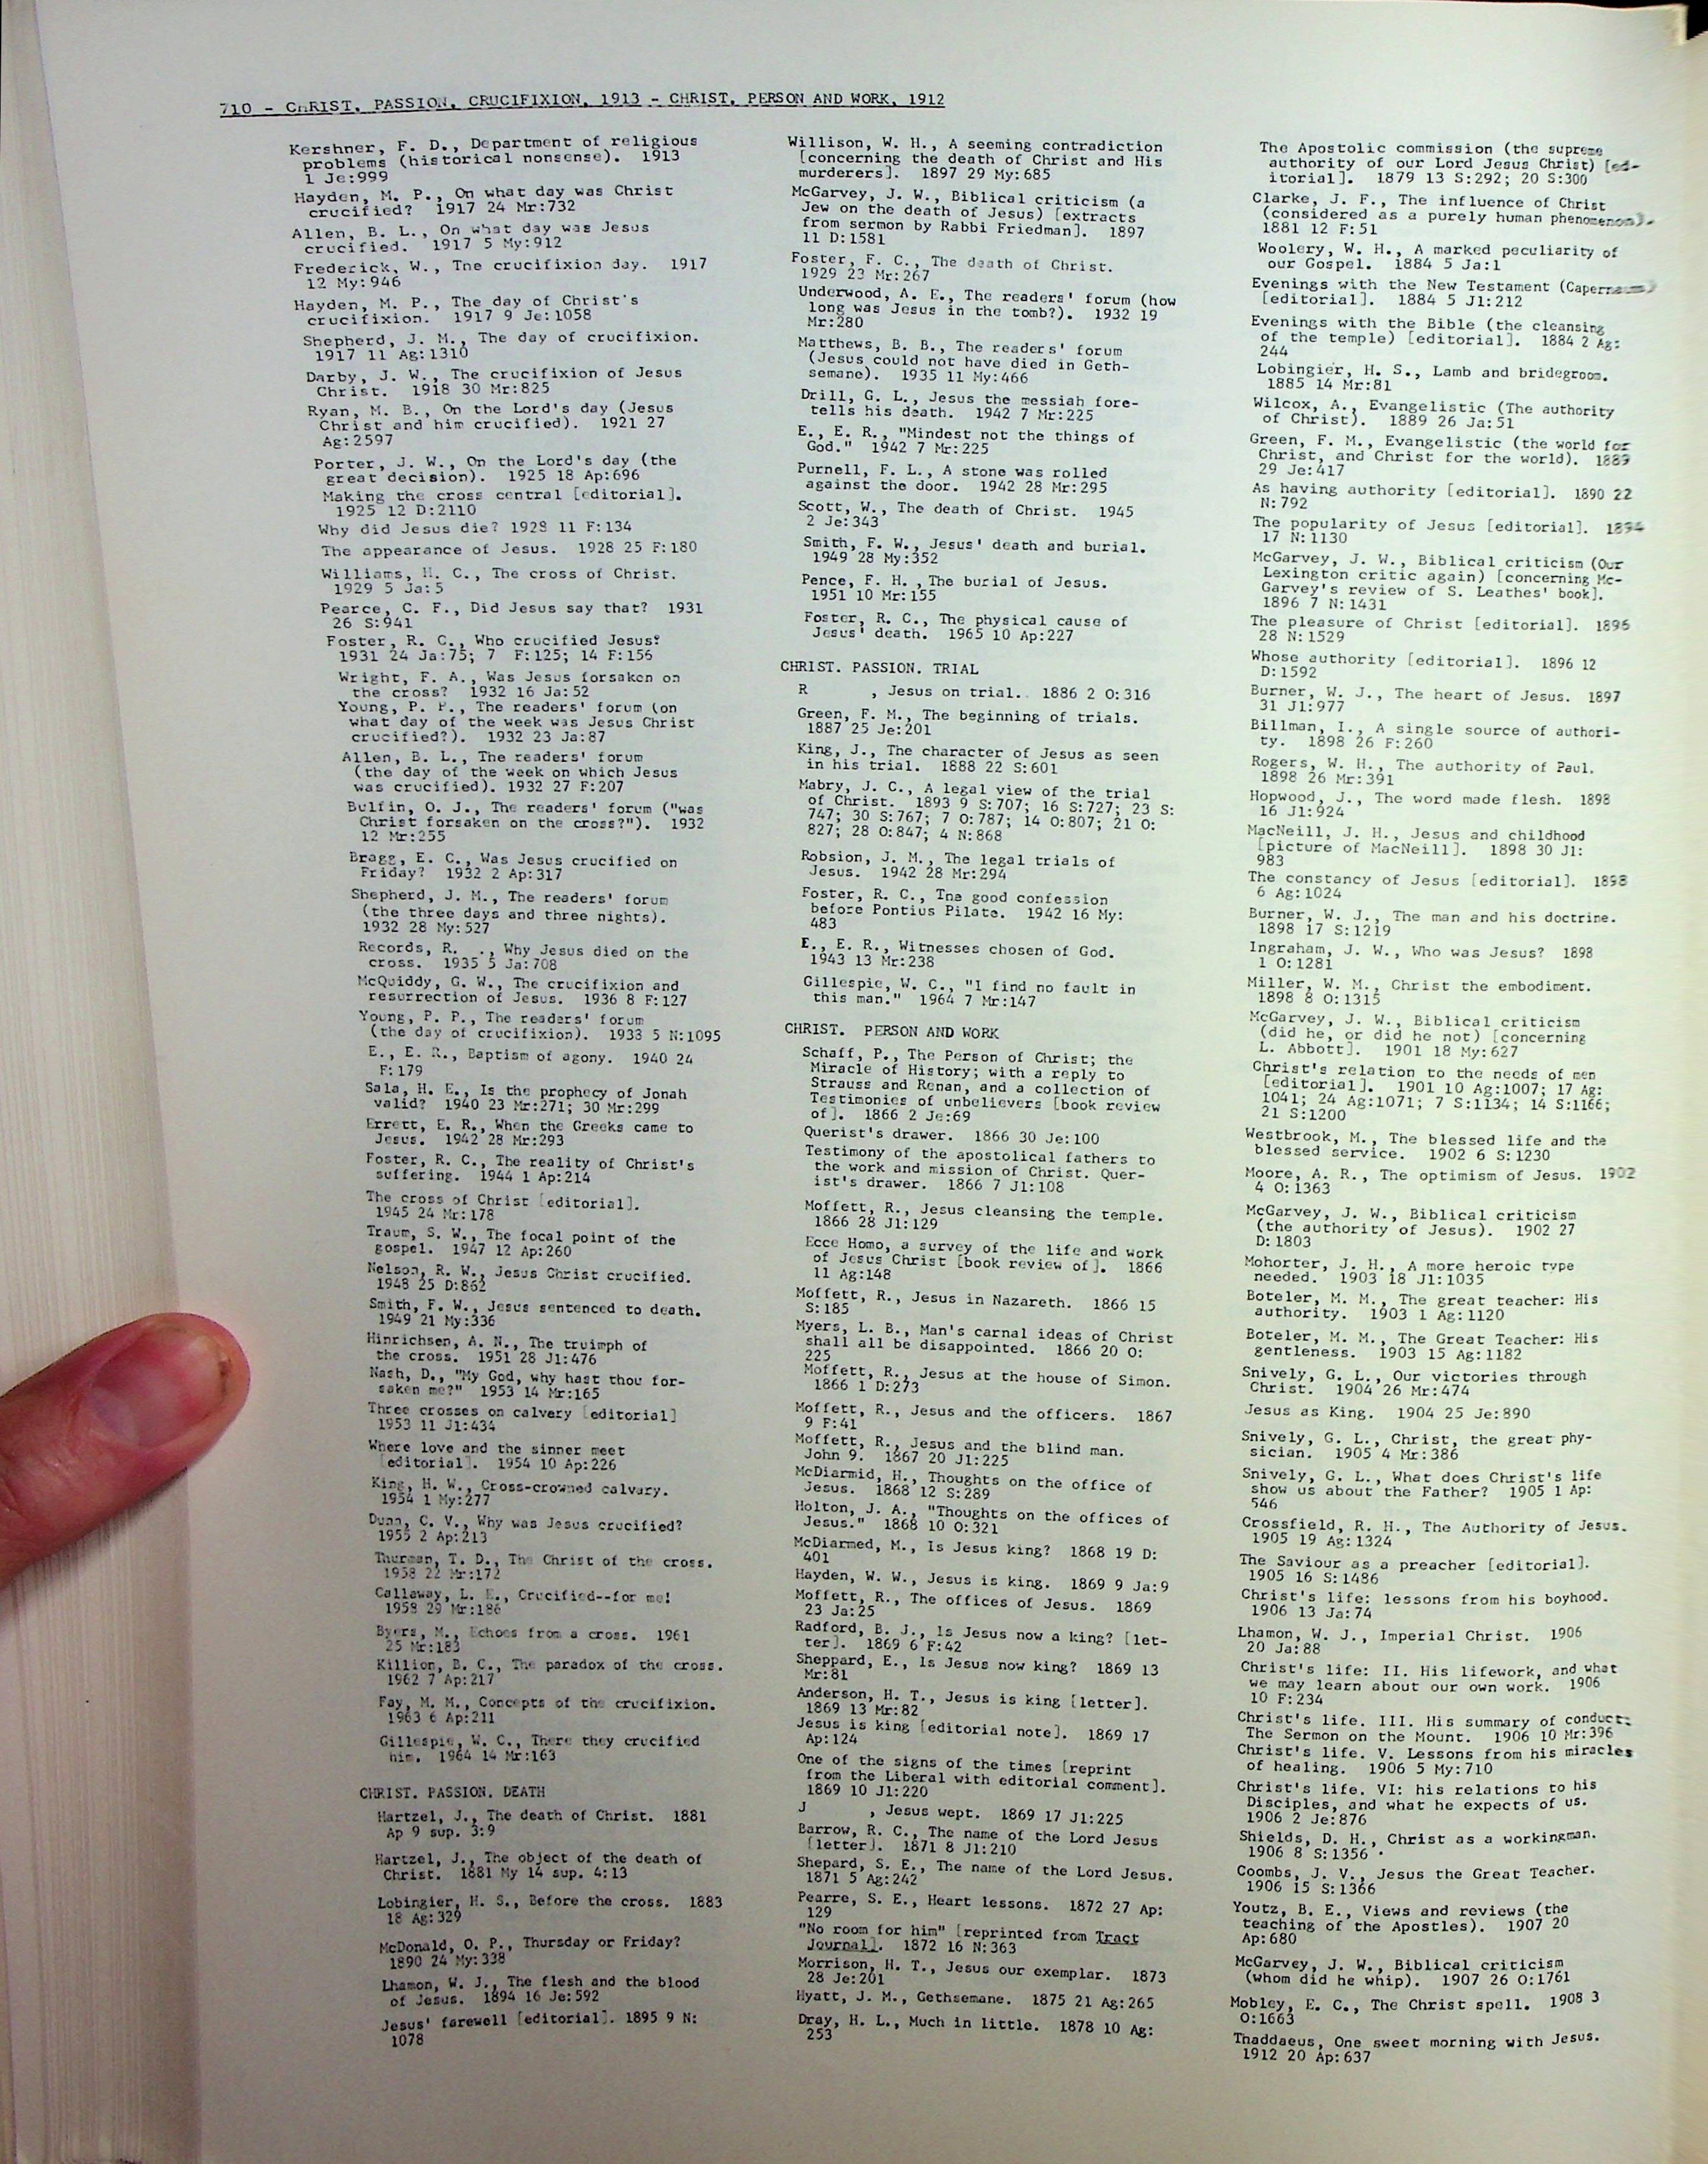 710 - CHRIST. PASSION. CRUCIFIXION, 1913 - CHRIST. PERSON AND WORK, 1912
Kershner, F. D., Department of religious
problems (historical nonsense). 1913
1 Je:999
Hayden, M. P., On what day was Christ
crucified? 1917 24 Mr:732
Allen, B. L., On what day was Jesus
crucified. 1917 5 My:912
Frederick, W., The crucifixion day. 1917
12 My:946
Hayden, M. P., The day of Christ's
crucifixion. 1917 9 Je:1058
Shepherd, J. M., The day of crucifixion.
1917 11 Ag:1310
Darby, J. W., The crucifixion of Jesus
Christ. 1918 30 Mr:825
Ryan, M. B., On the Lord's day (Jesus
Christ and him crucified). 1921 27
Ag:2597
Porter, J. W., On the Lord's day (the
great decision). 1925 18 Ap:696
Making the cross central [editorial].
1925 12 D:2110
Why did Jesus die? 1928 11 F:134
The appearance of Jesus. 1928 25 F:180
Williams, H. C., The cross of Christ.
1929 5 Ja:5
Pearce, C. F., Did Jesus say that? 1931
26 S:941
Foster, R. C., Who crucified Jesus?
1931 24 Ja:75; 7 F:125; 14 F:156
Wright, F. A., Was Jesus forsaken on
the cross? 1932 16 Ja:52
Young, P. P., The readers' forum (on
what day of the week was Jesus Christ
crucified?). 1932 23 Ja:87
Allen, B. L., The readers' forum
(the day of the week on which Jesus
was crucified). 1932 27 F:207
Bulfin, O. J., The readers' forum ("was
Christ forsaken on the cross?"). 1932
12 Mr:255
Bragg, E. C., Was Jesus crucified on
Friday? 1932 2 Ap:317
Shepherd, J. M., The readers' forum
(the three days and three nights).
1932 28 My:527
Records, R. ., Why Jesus died on the
cross. 1935 5 Ja:708
McQuiddy, G. W., The crucifixion and
resurrection of Jesus. 1936 8 F:127
Young, P. P., The readers' forum
(the day of crucifixion). 1933 5 N:1095
E., E. R., Baptism of agony. 1940 24
F:179
Sala, H. E., Is the prophecy of Jonah
valid? 1940 23 Mr:271; 30 Mr:299
Errett, E. R., When the Greeks came to
Jesus. 1942 28 Mr:293
Foster, R. C., The reality of Christ's
suffering. 1944 1 Ap:214
The cross of Christ [editorial].
1945 24 Mr:178
Traum, S. W., The focal point of the
gospel. 1947 12 Ap:260
Nelson, R. W., Jesus Christ crucified.
1948 25 D:862
Smith, F. W., Jesus sentenced to death.
1949 21 My:336
Hinrichsen, A. N., The truimph of
the cross. 1951 28 Jl:476
Nash, D., "My God, why hast thou for-
saken me?" 1953 14 Mr:165
Three crosses on calvery [editorial]
1953 11 Jl:434
Where love and the sinner meet
[editorial]. 1954 10 Ap:226
King, H. W., Cross-crowned calvary.
1954 1 My:277
Dunn, C. V., Why was Jesus crucified?
1955 2 Ap:213
Thurman, T. D., The Christ of the cross.
1958 22 Mr:172
Callaway, L. E., Crucified--for me!
1958 29 Mr:186
Byers, M., Echoes from a cross. 1961
25 Mr:183
Killion, B. C., The paradox of the cross.
1962 7 Ap:217
Fay, M. M., Concepts of the crucifixion.
1963 6 Ap:211
Gillespie, W. C., There they crucified
him. 1964 14 Mr:163
CHRIST. PASSION. DEATH
Hartzel, J., The death of Christ. 1881
Ap 9 sup. 3:9
Hartzel, J., The object of the death of
Christ. 1881 My 14 sup. 4:13
Lobingier, H. S., Before the cross. 1883
18 Ag:329
McDonald, O. P., Thursday or Friday?
1890 24 My:338
Lhamon, W. J., The flesh and the blood
of Jesus. 1894 16 Je:592
Jesus' farewell [editorial]. 1895 9 N:
1078
Willison, W. H., A seeming contradiction
[concerning the death of Christ and His
murderers]. 1897 29 My:685
McGarvey, J. W., Biblical criticism (a
Jew on the death of Jesus) [extracts
from sermon by Rabbi Friedman]. 1897
11 D:1581
Foster, F. C., The death of Christ.
1929 23 Mr:267
Underwood, A. E., The readers' forum (how
long was Jesus in the tomb?). 1932 19
Mr:280
Matthews, B. B., The readers' forum
(Jesus could not have died in Geth-
semane). 1935 11 My:466
Drill, G. L., Jesus the messiah fore-
tells his death. 1942 7 Mr:225
E., E. R., "Mindest not the things of
God." 1942 7 Mr:225
Purnell, F. L., A stone was rolled
against the door. 1942 28 Mr:295
Scott, W., The death of Christ. 1945
2 Je:343
Smith, F. W., Jesus' death and burial.
1949 28 My:352
Pence, F. H., The burial of Jesus.
1951 10 Mr:155
Foster, R. C., The physical cause of
Jesus' death. 1965 10 Ap:227
CHRIST. PASSION. TRIAL
R , Jesus on trial. 1886 2 O:316
Green, F. M., The beginning of trials.
1887 25 Je:201
King, J., The character of Jesus as seen
in his trial. 1888 22 S:601
Mabry, J. C., A legal view of the trial
of Christ. 1893 9 S:707; 16 S:727; 23 S:
747; 30 S:767; 7 O:787; 14 O:807; 21 O:
827; 28 O:847; 4 N:868
Robsion, J. M., The legal trials of
Jesus. 1942 28 Mr:294
Foster, R. C., The good confession
before Pontius Pilate. 1942 16 My:
483
E., E. R., Witnesses chosen of God.
1943 13 Mr:238
Gillespie, W. C., "I find no fault in
this man." 1964 7 Mr:147
CHRIST. PERSON AND WORK
Schaff, P., The Person of Christ; the
Miracle of History; with a reply to
Strauss and Renan, and a collection of
Testimonies of unbelievers [book review
of]. 1866 2 Je:69
Querist's drawer. 1866 30 Je:100
Testimony of the apostolical fathers to
the work and mission of Christ. Quer-
ist's drawer. 1866 7 Jl:108
Moffett, R., Jesus cleansing the temple.
1866 28 Jl:129
Ecce Homo, a survey of the life and work
of Jesus Christ [book review of]. 1866
11 Ag:148
Moffett, R., Jesus in Nazareth. 1866 15
S:185
Myers, L. B., Man's carnal ideas of Christ
shall all be disappointed. 1866 20 O:
225
Moffett, R., Jesus at the house of Simon.
1866 1 D:273
Moffett, R., Jesus and the officers. 1867
9 F:41
Moffett, R., Jesus and the blind man.
John 9. 1867 20 Jl:225
McDiarmid, H., Thoughts on the office of
Jesus. 1868 12 S:289
Holton, J. A., "Thoughts on the offices of
Jesus." 1868 10 O:321
McDiarmed, M., Is Jesus king? 1868 19 D:
401
Hayden, W. W., Jesus is king. 1869 9 Ja:9
Moffett, R., The offices of Jesus. 1869
23 Ja:25
Radford, B. J., Is Jesus now a king? [let-
ter]. 1869 6 F:42
Sheppard, E., Is Jesus now king? 1869 13
Mr:81
Anderson, H. T., Jesus is king [letter].
1869 13 Mr:82
Jesus is king [editorial note]. 1869 17
Ap:124
One of the signs of the times [reprint
from the Liberal with editorial comment].
1869 10 Jl:220
J , Jesus wept. 1869 17 Jl:225
Barrow, R. C., The name of the Lord Jesus
[letter]. 1871 8 Jl:210
Shepard, S. E., The name of the Lord Jesus.
1871 5 Ag:242
Pearre, S. E., Heart lessons. 1872 27 Ap:
129
"No room for him" [reprinted from Tract
Journal]. 1872 16 N:363
Morrison, H. T., Jesus our exemplar. 1873
28 Je:201
Hyatt, J. M., Gethsemane. 1875 21 Ag:265
Dray, H. L., Much in little. 1878 10 Ag:
253
The Apostolic commission (the supreme
authority of our Lord Jesus Christ) [ed-
itorial]. 1879 13 S:292; 20 S:300
Clarke, J. F., The influence of Christ
(considered as a purely human phenomenon).
1881 12 F:51
Woolery, W. H., A marked peculiarity of
our Gospel. 1884 5 Ja:1
Evenings with the New Testament (Capernaum)
[editorial]. 1884 5 Jl:212
Evenings with the Bible (the cleansing
of the temple) [editorial]. 1884 2 Ag:
244
Lobingier, H. S., Lamb and bridegroom.
1885 14 Mr:81
Wilcox, A., Evangelistic (The authority
of Christ). 1889 26 Ja:51
Green, F. M., Evangelistic (the world for
Christ, and Christ for the world). 1889
29 Je:417
As having authority [editorial]. 1890 22
N:792
The popularity of Jesus [editorial]. 1894
17 N:1130
McGarvey, J. W., Biblical criticism (Our
Lexington critic again) [concerning Mc-
Garvey's review of S. Leathes' book].
1896 7 N:1431
The pleasure of Christ [editorial]. 1896
28 N:1529
Whose authority [editorial]. 1896 12
D:1592
Burner, W. J., The heart of Jesus. 1897
31 Jl:977
Billman, I., A single source of authori-
ty. 1898 26 F:260
Rogers, W. H., The authority of Paul.
1898 26 Mr:391
Hopwood, J., The word made flesh. 1898
16 Jl:924
MacNeill, J. H., Jesus and childhood
[picture of MacNeill]. 1898 30 Jl:
983
The constancy of Jesus [editorial]. 1898
6 Ag:1024
Burner, W. J., The man and his doctrine.
1898 17 S:1219
Ingraham, J. W., Who was Jesus? 1898
1 O:1281
Miller, W. M., Christ the embodiment.
1898 8 O:1315
McGarvey, J. W., Biblical criticism
(did he, or did he not) [concerning
L. Abbott]. 1901 18 My:627
Christ's relation to the needs of men
[editorial]. 1901 10 Ag:1007; 17 Ag:
1041; 24 Ag:1071; 7 S:1134; 14 S:1166;
21 S:1200
Westbrook, M., The blessed life and the
blessed service. 1902 6 S:1230
Moore, A. R., The optimism of Jesus. 1902
4 O:1363
McGarvey, J. W., Biblical criticism
(the authority of Jesus). 1902 27
D:1803
Mohorter, J. H., A more heroic type
needed. 1903 18 Jl:1035
Boteler, M. M., The great teacher: His
authority. 1903 1 Ag:1120
Boteler, M. M., The Great Teacher: His
gentleness. 1903 15 Ag:1182
Snively, G. L., Our victories through
Christ. 1904 26 Mr:474
Jesus as King. 1904 25 Je:890
Snively, G. L., Christ, the great phy-
sician. 1905 4 Mr:386
Snively, G. L., What does Christ's life
show us about the Father? 1905 1 Ap:
546
Crossfield, R. H., The Authority of Jesus.
1905 19 Ag:1324
The Saviour as a preacher [editorial].
1905 16 S:1486
Christ's life: lessons from his boyhood.
1906 13 Ja:74
Lhamon, W. J., Imperial Christ. 1906
20 Ja:88
Christ's life: II. His lifework, and what
we may learn about our own work. 1906
10 F:234
Christ's life. III. His summary of conduct:
The Sermon on the Mount. 1906 10 Mr:396
Christ's life. V. Lessons from his miracles
of healing. 1906 5 My:710
Christ's life. VI: his relations to his
Disciples, and what he expects of us.
1906 2 Je:876
Shields, D. H., Christ as a workingman.
1906 8 S:1356
Coombs, J. V., Jesus the Great Teacher.
1906 15 S:1366
Youtz, B. E., Views and reviews (the
teaching of the Apostles). 1907 20
Ap:680
McGarvey, J. W., Biblical criticism
(whom did he whip). 1907 26 O:1761
Mobley, E. C., The Christ spell. 1908 3
O:1663
Thaddaeus, One sweet morning with Jesus.
1912 20 Ap:637